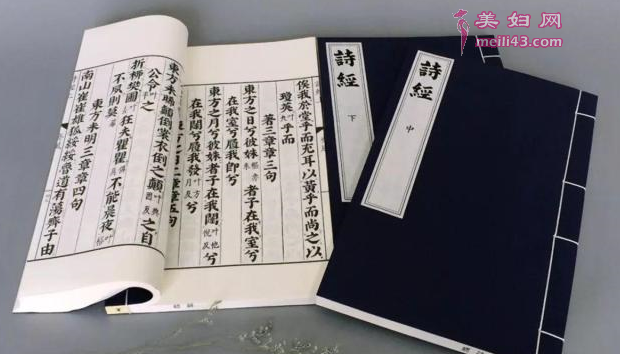 美妇网
meili43.com
詩經
中
詩經
下
俟我於堂乎而充耳以黃乎而尚之以
瓊英乎而
著三章章三句
東方之日兮彼姝者子在我室兮
在我室兮履我即兮
東方之月兮彼姝者子在我闥叶他悅反兮
在我闥兮履我發叶方月反兮
二章章五句
東方未晞顛倒裳衣倒之顛叶典因反之自
公令之
折柳樊圃狂夫瞿瞿不能晨夜
不夙則莫
東方未明三章章四句
南山崔崔雄狐綏綏魯道有蕩齊子由